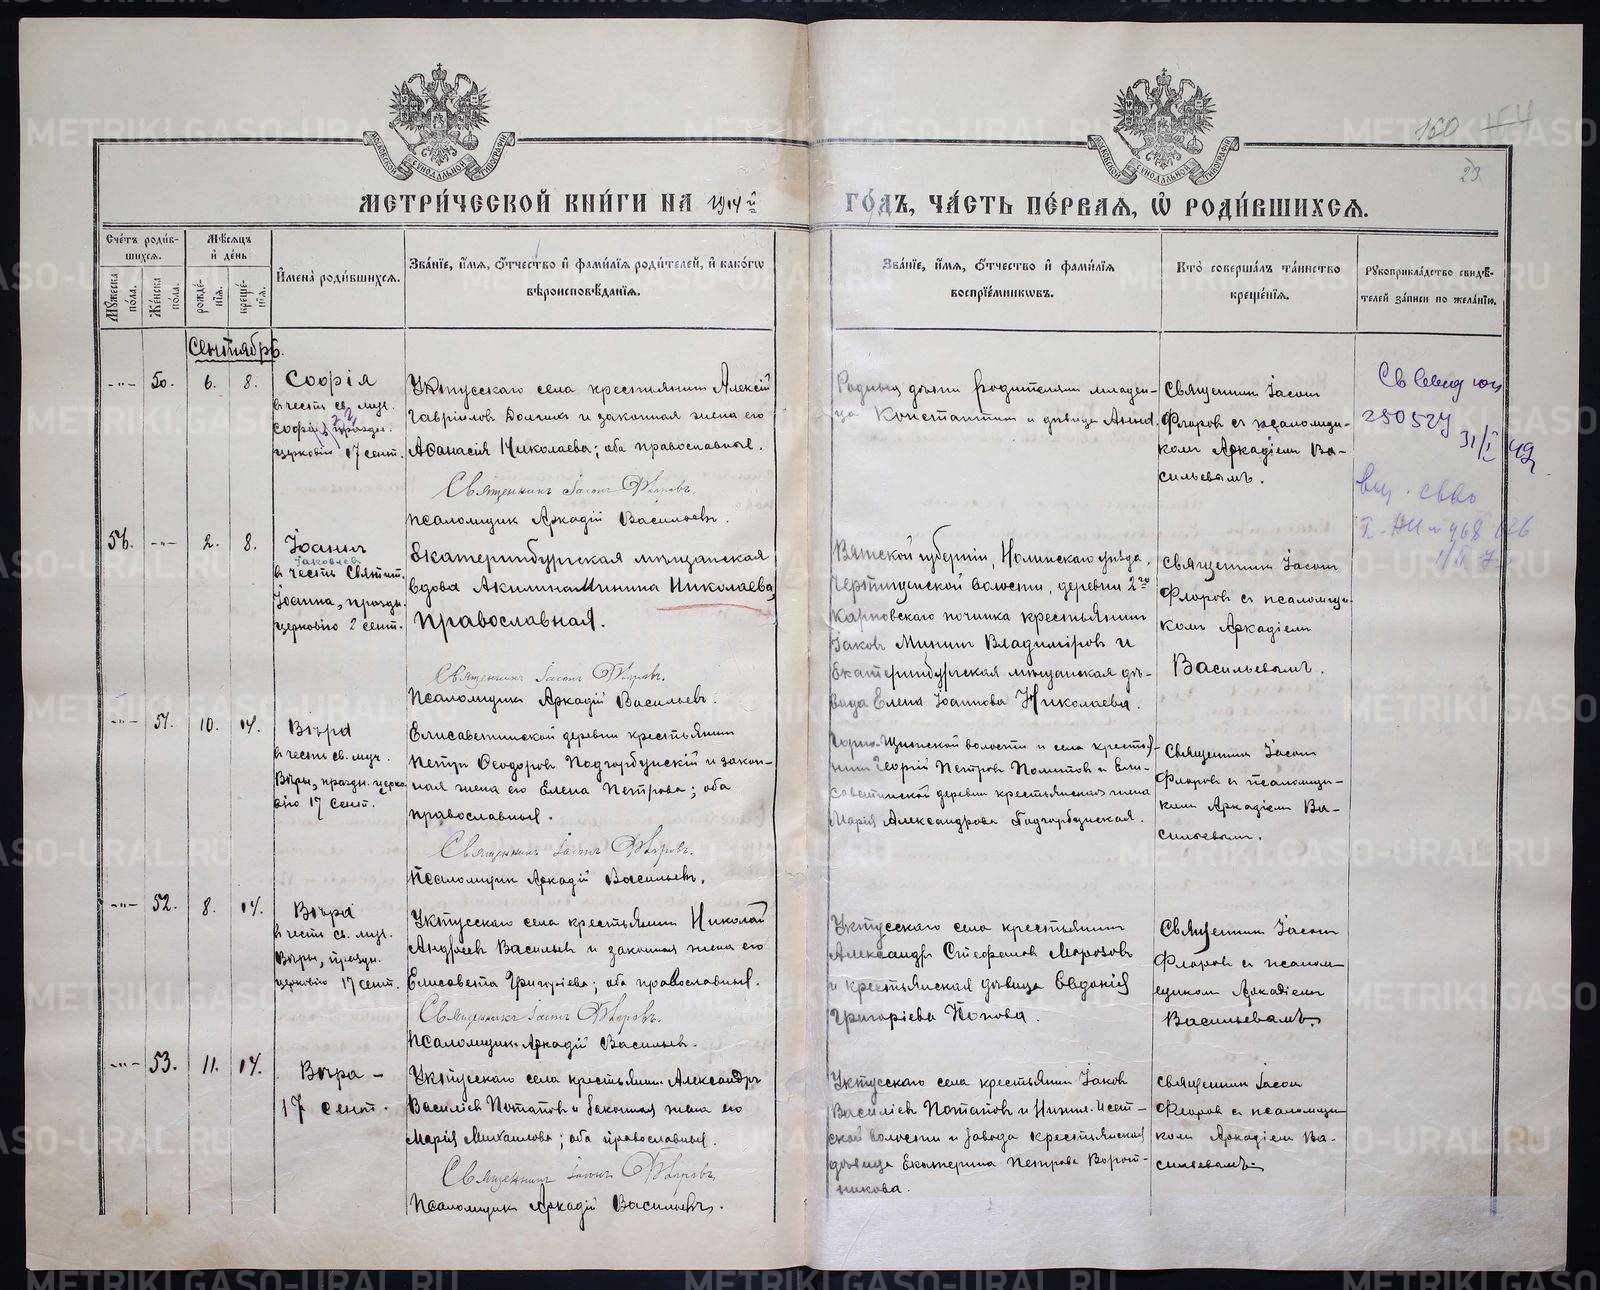 160
23
МЕТРИ́ЧЕСКОЙ КНИ́ГИ НА 1914й ГО́ДЪ, ЧА́СТЬ ПЕ́РВАЯ, Ѡ РОДИ́ВШИХСЯ.
Сче́тъ роди́в-
шихся.
Мѣ́сяцъ
и҆ де́нь
И҆мена̀ роди́вшихся.
Зва́нїе, и҆́мя, о҆́тчество и҆ фами́лїя роди́телей, и҆ како́гѡ
вѣроисповѣ́данїя.
Зва́нїе, и҆́мя, о҆́тчество и҆ фами́лїя
воспрїе́мникѡвъ.
Кто̀ соверша́лъ та́инство
креще́нїя.
Рꙋкоприкла́дство свидѣ́-
телей за́писи по жела́нїю.
Мꙋ́жеска
по́ла.
Же́нска
по́ла.
рожде́-
нїя.
креще́-
нїя.
Сентябрь.
50. 6. 8.
Софія
въ честь св. муч.
Софіи, праздн.
церковію 17 сент.
Уктусскаго села крестьянинъ Алексій
Гавріиловъ и законная жена его
Аѳанасія Николаева; оба православные.
Священникъ Іасонъ Флоровъ.
Псаломщикъ Аркадій Васильевъ.
Родныя дѣти родителямъ младен-
ца Константинъ и дѣвица Анна.
Священникъ Іасонъ
Флоровъ съ псаломщи-
комъ Аркадіемъ Ва-
сильевымъ.
250527
31/I 49
56. 2. 8.
Іоаннъ
Яковлевъ
въ честь Святит.
Іоанна, праздн.
церковію 2 сент.
Екатеринбургская мѣщанская
вдова Акилина Минина Николаева,
православная.
Священникъ Іасонъ Флоровъ.
Псаломщикъ Аркадій Васильевъ.
Вятской губерніи, Нолинскаго уѣзда,
волости, деревни 2го
Карповскаго починка крестьянинъ
Іаковъ Мининъ Владиміровъ и
Екатеринбургская мѣщанская дѣ-
вица Елена Іоаннова Николаева.
Священникъ Іасонъ
Флоровъ съ псаломщи-
комъ Аркадіемъ
Васильевымъ.
51. 10. 14.
Вѣра
въ честь св. муч.
Вѣры, праздн. церко-
вію 17 сент.
Елисаветинской деревни крестьянинъ
Петръ Ѳеодоровъ Подгорбунскій и закон-
ная жена его Елена Петрова; оба
православные.
Священникъ Іасонъ Флоровъ.
Псаломщикъ Аркадій Васильевъ.
Горно-Щитской волости и села крестья-
нинъ Георгій Петровъ Политовъ и Ели-
саветинской деревни крестьянская жена
Марія Александрова Подгорбунская.
Священникъ Іасонъ
Флоровъ съ псаломщи-
комъ Аркадіемъ Ва-
сильевымъ.
52. 8. 14.
Вѣра
въ честь св. муч.
Вѣры, праздн.
церковію 17 сент.
Уктусскаго села крестьянинъ Николай
Андреевъ Васильевъ и законная жена его
Елисавета Григоріева; оба православные.
Священникъ Іасонъ Флоровъ.
Псаломщикъ Аркадій Васильевъ.
Уктусскаго села крестьянинъ
Александръ Стефановъ Морозовъ
и крестьянская дѣвица Евдокія
Григоріева Попова.
Священникъ Іасонъ
Флоровъ съ псалом-
щикомъ Аркадіемъ
Васильевымъ.
53. 11. 14.
Вѣра –
17 сент.
Уктусскаго села крестьянинъ Александръ
Василіевъ Потаповъ и законная жена его
Марія Михаилова; оба православные.
Священникъ Іасонъ Флоровъ.
Псаломщикъ Аркадій Васильевъ.
Уктусскаго села крестьянинъ Іаковъ
Василіевъ Потаповъ и Нижне-Исет-
ской волости и завода крестьянская
дѣвица Екатерина Петрова Ворот-
никова.
Священникъ Іасонъ
Флоровъ съ псаломщи-
комъ Аркадіемъ Ва-
сильевымъ.
METRIKI.GASO-URAL.RU